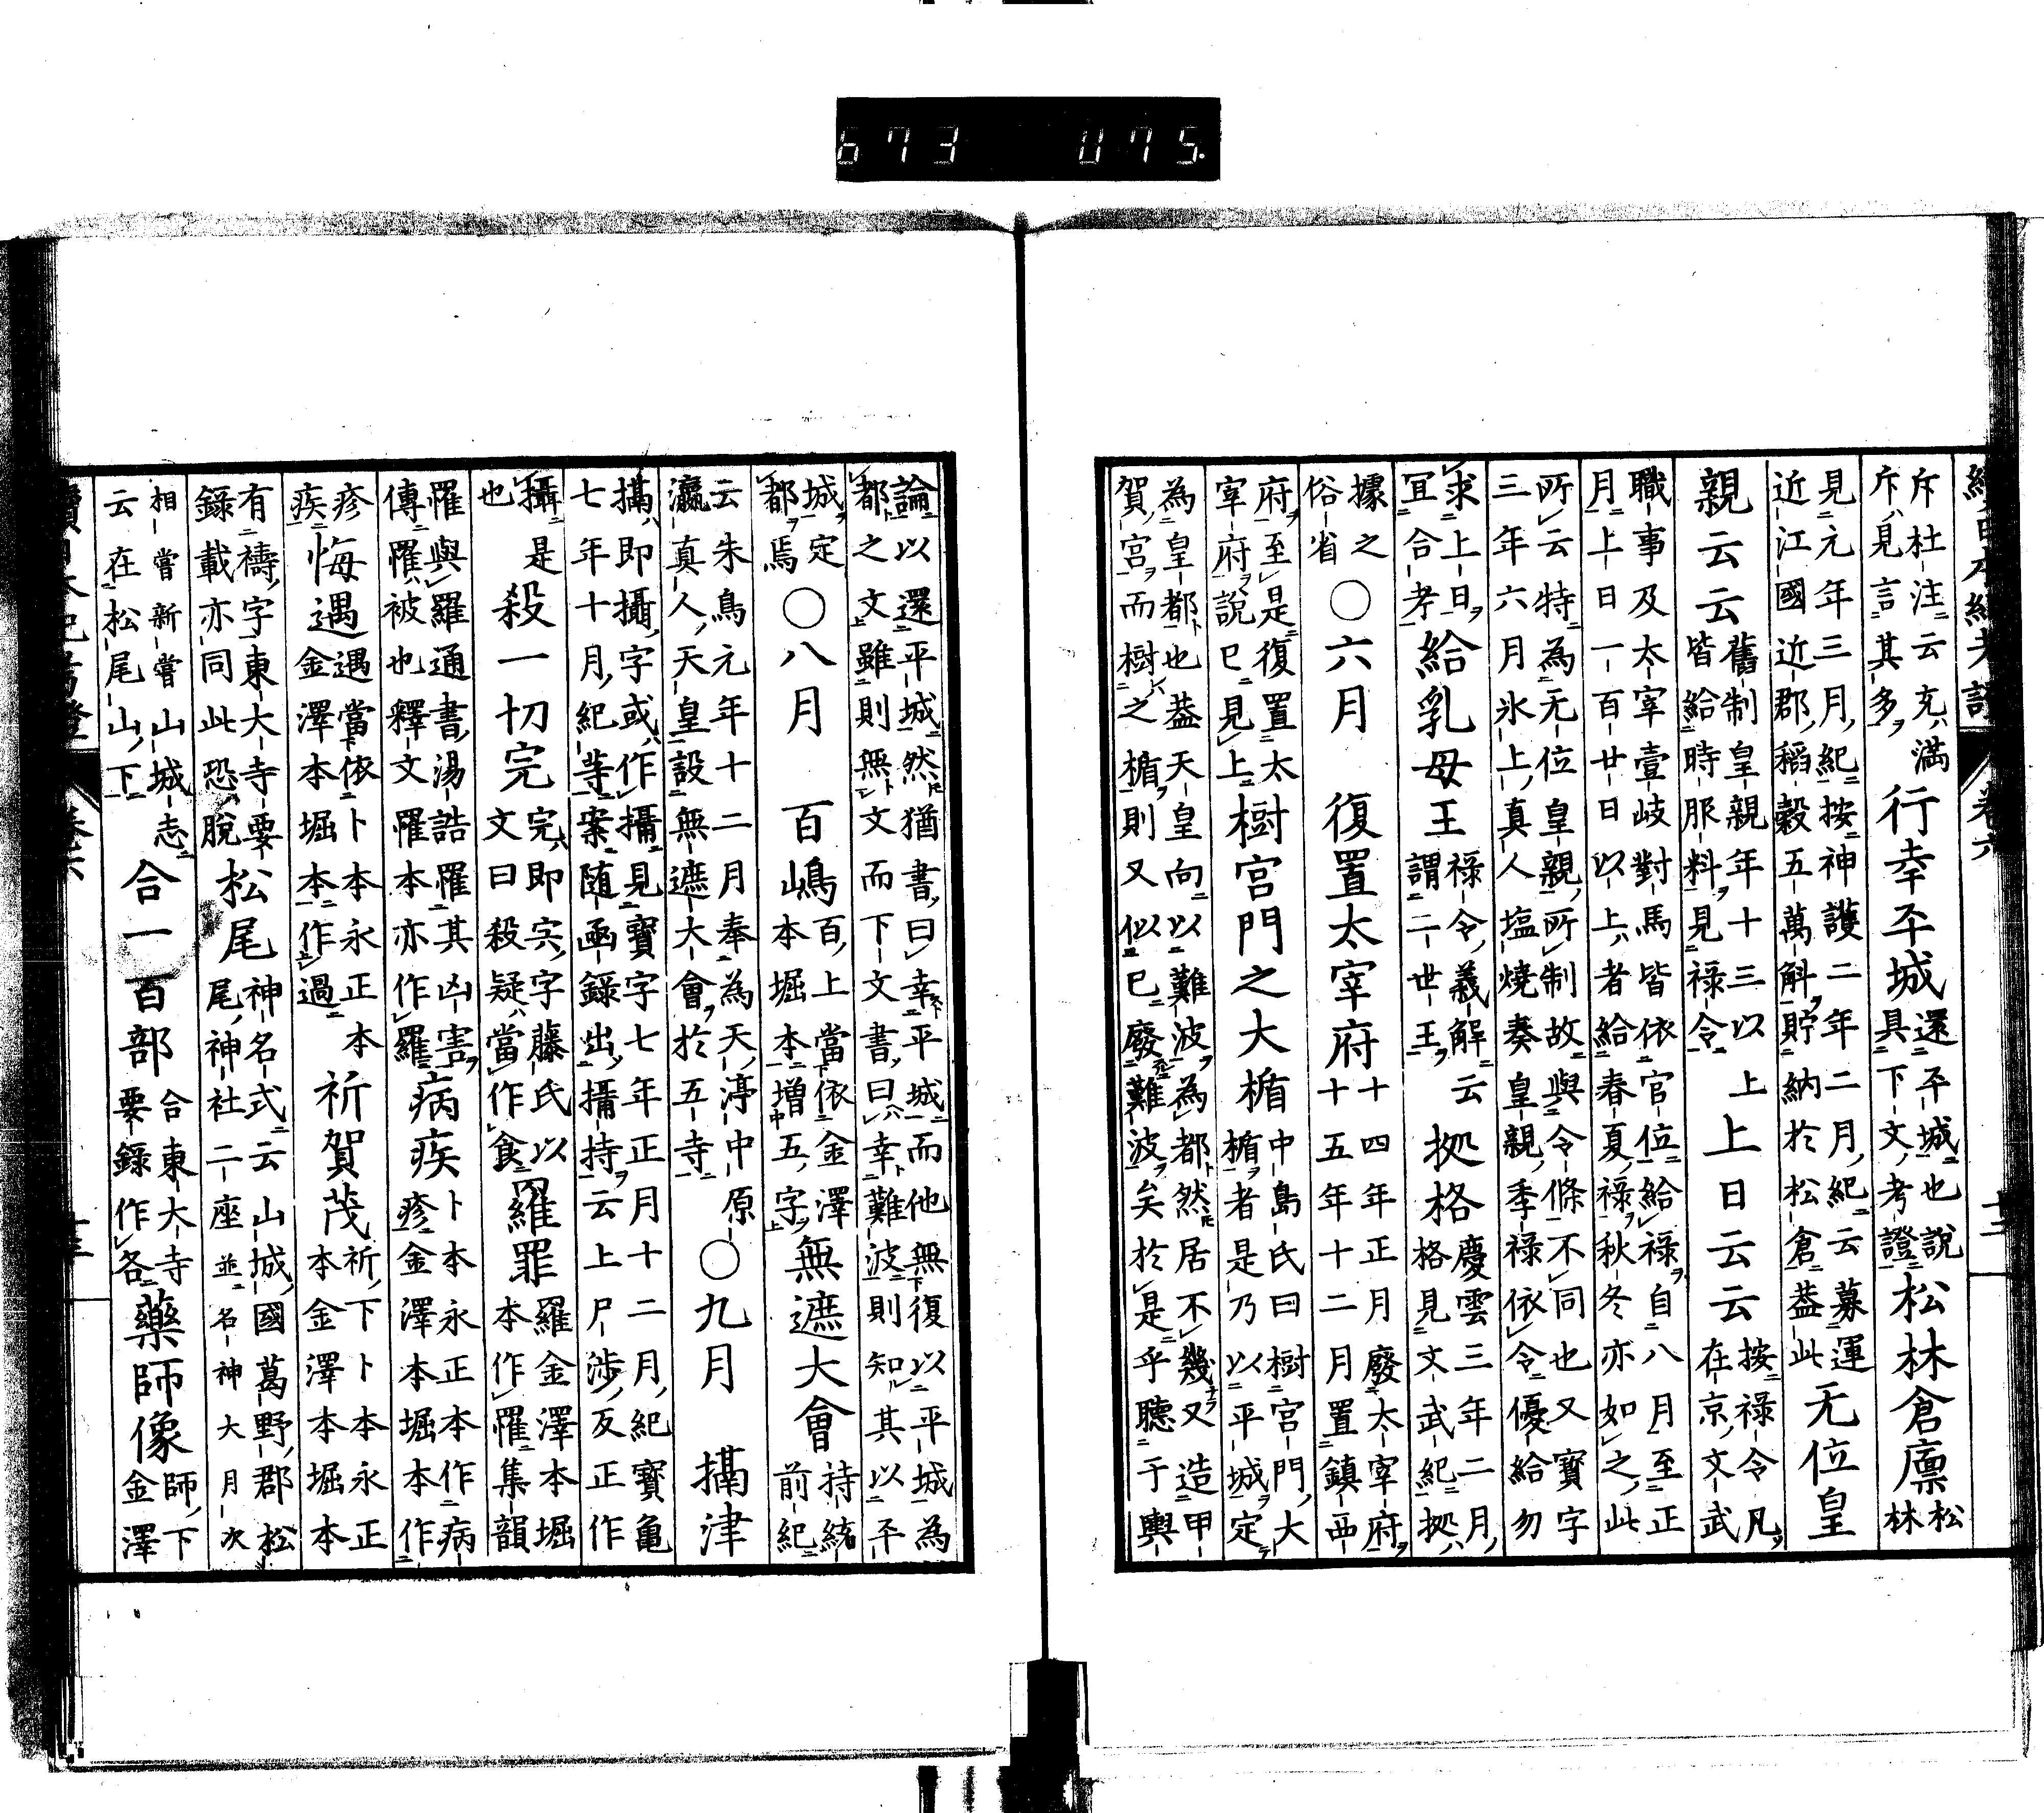 673 075.
續日本紀考證 卷六 十三
斥杜注云充滿
斥見言其多行幸平城還平城也說具下文考證松林倉廩松林
見元年三月紀按神護二年二月紀云募運
近江國近郡稻穀五萬斛貯納於松倉葢此无位皇
親云云舊制皇親年十三以上皆給時服料見祿令上日云云按祿令凡在京文武
職事及太宰壹岐對馬皆依官位給祿自八月至正
月上日一百廿日以上者給春夏祿秋冬亦如之此
所云特為无位皇親所制故與令條不同也又寶字
三年六月氷上真人塩燒奏皇親季祿依令優給勿
求上日冝合考給乳母王祿令義解云謂二世王拠格慶雲三年二月格見文武紀拠
據之俗省〇六月 復置太宰府十四年正月廢太宰府十五年十二月置鎮西
府至是復置太宰府說已見上樹宮門之大楯中島氏曰樹宮門大楯者是乃以平城定
為皇都也葢天皇向以難波為都然居不幾又造甲
賀宮而樹之楯則又似已廢難波矣於是乎聽于輿
論以還平城然猶書曰幸平城而他無復以平城為
都之文雖則無文而下文書曰幸難波則知其以平
城定都焉〇八月 百嶋百上當依金澤本堀本增五字無遮大會持統前紀
云朱鳥元年十二月奉為天渟中原
瀛真人天皇設無遮大會於五寺〇九月 搹津
搹即攝字或作攝見寶字七年正月十二月紀寶亀
七年十月紀等案随函錄出攝持云上尸涉反正作
攝是也殺一切完完即宍字藤氏以文曰殺疑當作食羅罪羅金澤本堀本作罹集韻
罹與羅通書湯誥罹其凶害
傳罹被也釋文罹本亦作羅病疾卜本永正本作病疹金澤本堀本作
疹疾悔遇遇當依卜本永正本金澤本堀本本作過祈賀茂祈下卜本永正本金澤本堀本
有禱字東大寺要錄載亦同此恐脫松尾神名式云山城國葛野郡松尾神社二座並名神大月次
相嘗新嘗山城志云在松尾山下合一百部合東大寺要錄作各藥師像師下金澤
續日本紀考證 卷六 十三